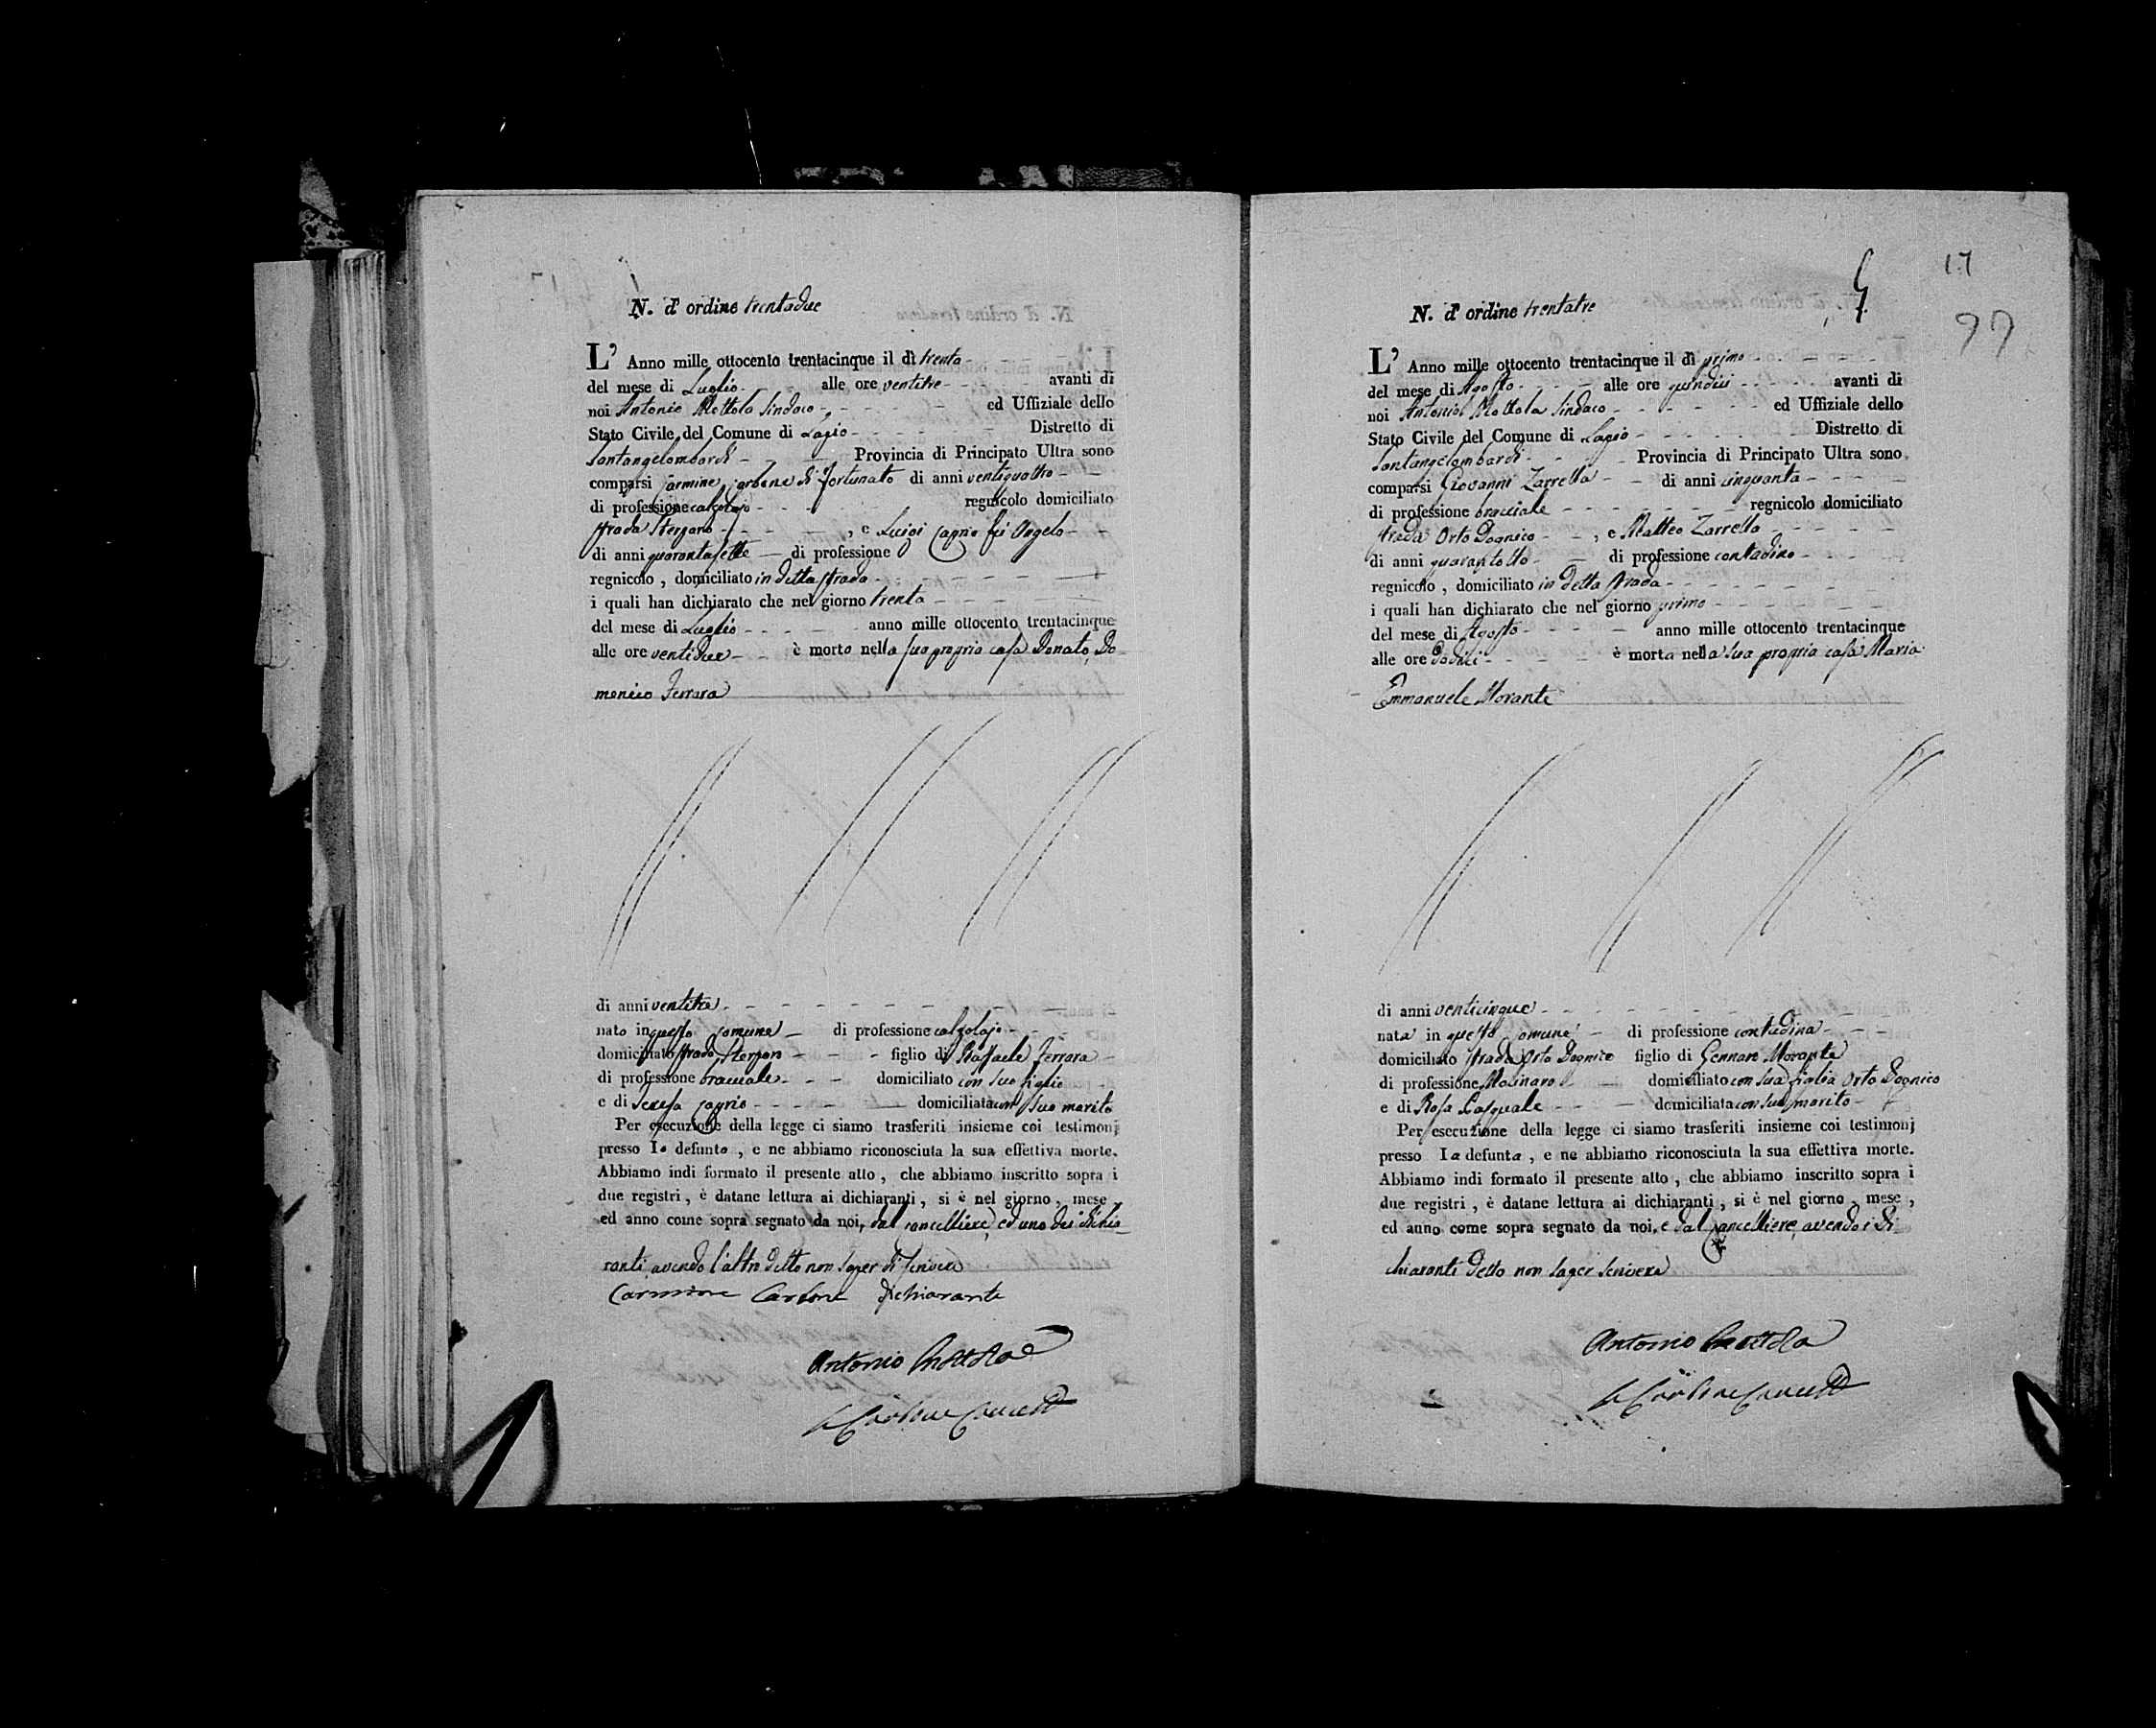 N. d'ordine trentadue
L' Anno mille ottocento trentacinque il dì trenta
del mese di Luglio alle ore ventitre avanti di
noi Antonio Mottola Sindaco ed Uffiziale dello
Stato Civile del Comune di Lagio Distretto di
Santangelombardi Provincia di Principato Ultra sono
comparsi Carmine Carbone di Fortunato di anni ventiquattro
di professione calzolajo regnicolo domiciliato
strada Sterpara, e Luigi Cagno fu Angelo
di anni quarantasette di professione
regnicolo, domiciliato in detta strada
i quali han dichiarato che nel giorno trenta
del mese di Luglio anno mille ottocento trentacinque
alle ore ventidue è morto nella sua propria casa Donato, Do-
menico Ferrara
di anni ventitre
nato in questo comune di professione calzolajo
domiciliato strada figlio di Raffaele Ferrara
di professione bracciale domiciliato con suo figlio
e di Teresa domiciliata con suo marito
Per esecuzione della legge ci siamo trasferiti insieme coi testimonj
presso lo defunto, e ne abbiamo riconosciuta la sua effettiva morte.
Abbiamo indi formato il presente atto, che abbiamo inscritto sopra i
due registri, è datane lettura ai dichiaranti, si è nel giorno, mese,
ed anno come sopra segnato da noi, dal cancelliere, ed uno dei dichia-
ranti avendo l'altro detto non saper di scrivere
Carmine Carbone dichiarante
Antonio Mottola
17
99
N. d'ordine trentatre
L' Anno mille ottocento trentacinque il dì primo
del mese di Agosto alle ore quindici avanti di
noi Antonio Mottola Sindaco ed Uffiziale dello
Stato Civile del Comune di Lagio Distretto di
Santangelombardi Provincia di Principato Ultra sono
comparsi Giovanni Zarrella di anni cinquanta
di professione bracciale regnicolo domiciliato
strada Orto Dognico, e Matteo Zarrella
di anni quarantotto di professione contadino
regnicolo, domiciliato in detta strada
i quali han dichiarato che nel giorno primo
del mese di Agosto anno mille ottocento trentacinque
alle ore dodici è morta nella sua propria casa Maria
Emmanuele Morante
di anni venticinque
nata in questo comune di professione contadina
domiciliato strada Orto Dognico figlio di Gennaro Morante
di professione Molinaro domiciliato con sua figlia Orto Dognico
e di Rosa Pasquale domiciliata con suo marito
Per esecuzione della legge ci siamo trasferiti insieme coi testimonj
presso la defunta, e ne abbiamo riconosciuta la sua effettiva morte.
Abbiamo indi formato il presente atto, che abbiamo inscritto sopra i
due registri, è datane lettura ai dichiaranti, si è nel giorno, mese,
ed anno come sopra segnato da noi, e dal Cancelliere, avendo i di-
chiaranti detto non saper scrivere
Antonio Mottola